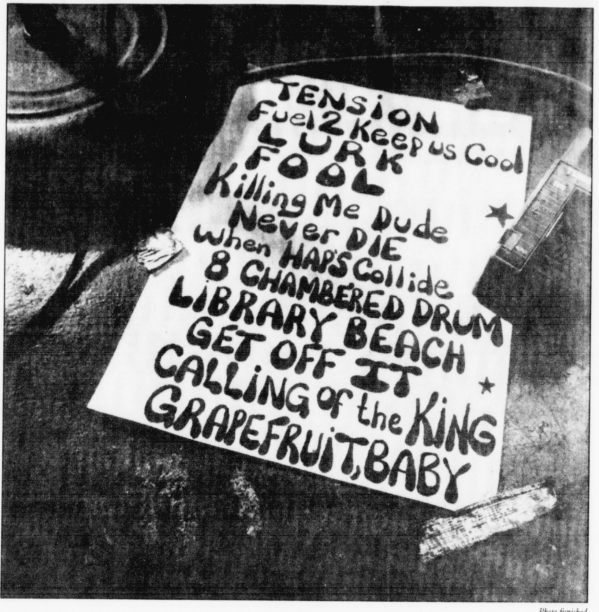 TENSION
Fuel 2 Keep us Cool
LURK
FOOL
Killing Me Dude
Never DIE
when HAP'S Collide
8 CHAMBERED DRUM
LiBRARY BEACH
GET OFF IT
CALLiNG of the KiNG
GRAPEFRUiT, BABY
Photo furnished